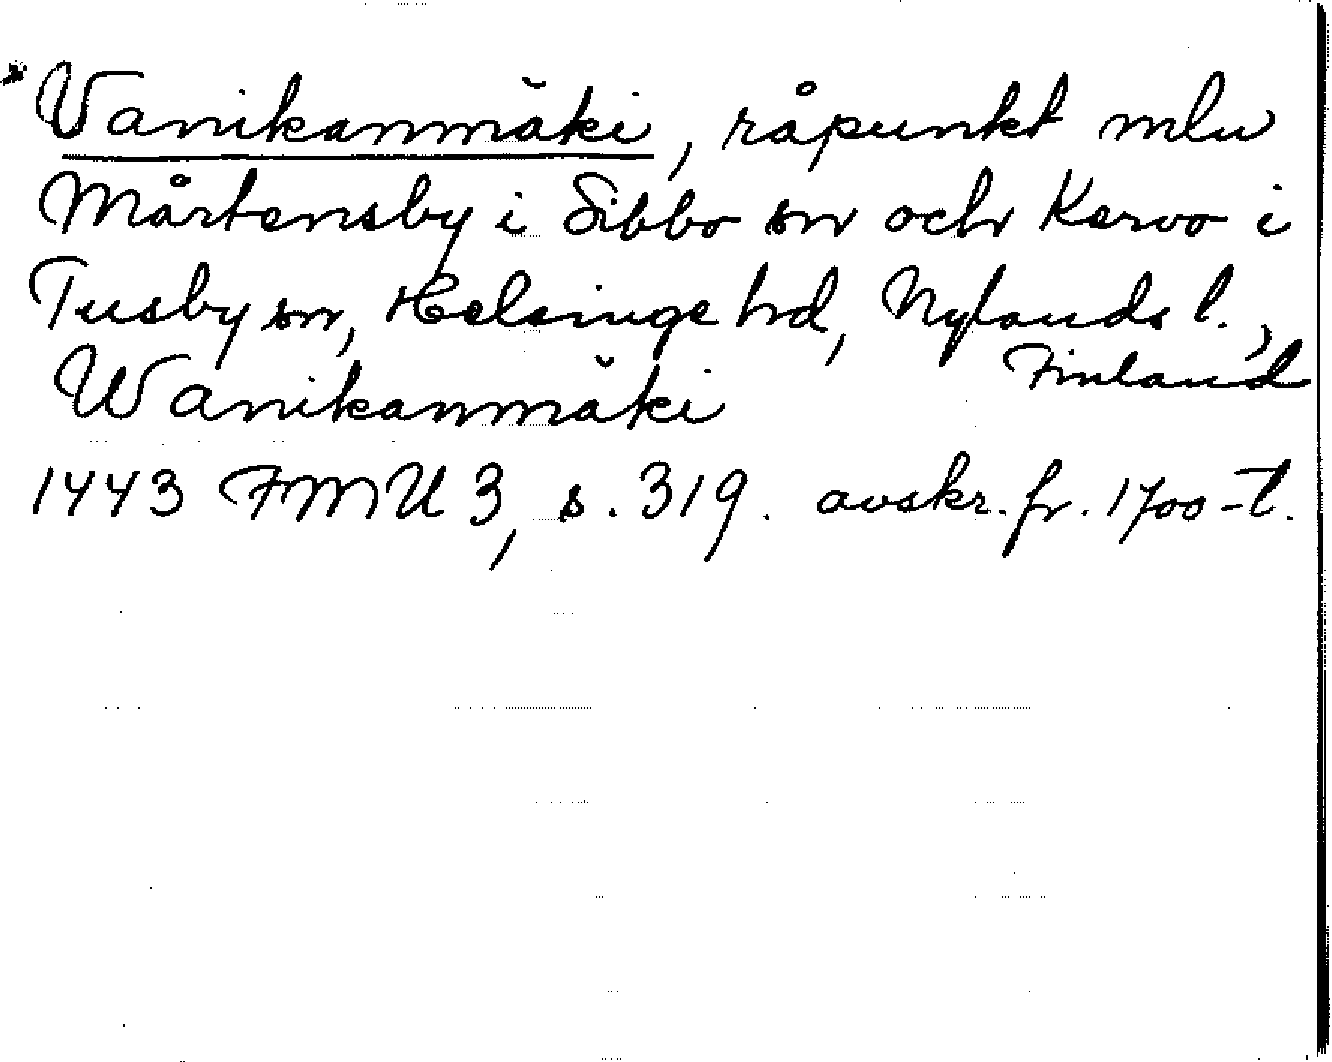 *Vanikanmäki, råpunkt mlu
Mårtensby i Sibbo sn och Kervo i
Tusby sn, Helsinge hd, Nylands l.,
Finland
Wanikanmäki
1443 FMU 3, s. 319. avskr. fr. 1700-t.